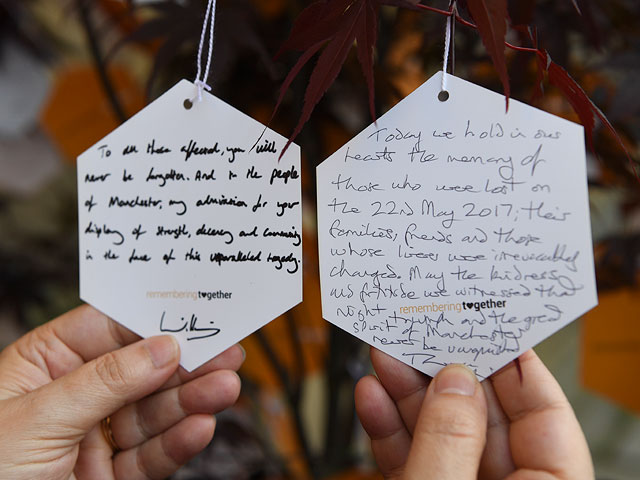 To all those affected, you will
never be forgotten. And to the people
of Manchester, my admiration for your
display of strength, decency and community
in the face of this unparalleled tragedy.
remembering t♥gether
Today we hold in our
hearts the memory of
those who were lost on
the 22nd May 2017; their
families, friends and those
whose lives were irrevocably
changed. May the kindness
and fortitude we witnessed that
remembering t♥gether
night triumph and the great
spirit of Manchester
never be vanquished